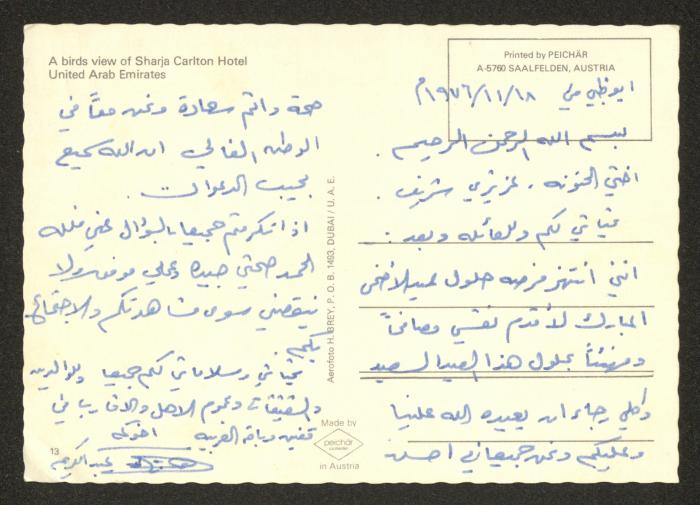 A birds view of Sharja Carlton Hotel
United Arab Emirates
Printed by PEICHÄR
A-5760 SAALFELDEN, AUSTRIA
ابوظبي في ١٩٧٦/١١/١٨م
بسم الله الرحمن الرحيم .
اختي الحنونه ، عزيزي شريف .
تحياتي لكم وللعائله وبعد :
انني أنتهز فرصة حلول عيد الأضحى
المبارك لأقدم نفسي مصافحاً
ومهنئاً بحلول هذا العيد السعيد
وكلي رجاء ان يعيده الله علينا
وعليكم ونحن جميعا في احسن
صحة واتم سعادة ونحن معاً في
الوطن الغالي ان الله سميع
مجيب الدعوات .
اذا تكرمتم جميعا بالسؤال عني فلله
الحمد صحتي جيده وعملي موفق ولا
ينقصني سوى مشاهدتكم والاجتماع
بكم
تحياتي وسلاماتي لكم جميعا وللوالدين
والشقيقات وعموم الاهل والاقارب في
وباقة الغربيه اخوكم
عبدالكريم
Aerofoto H. BREY, P. O. B. 1493, DUBAI / U. A. E.
Made by
peichär
in Austria
13